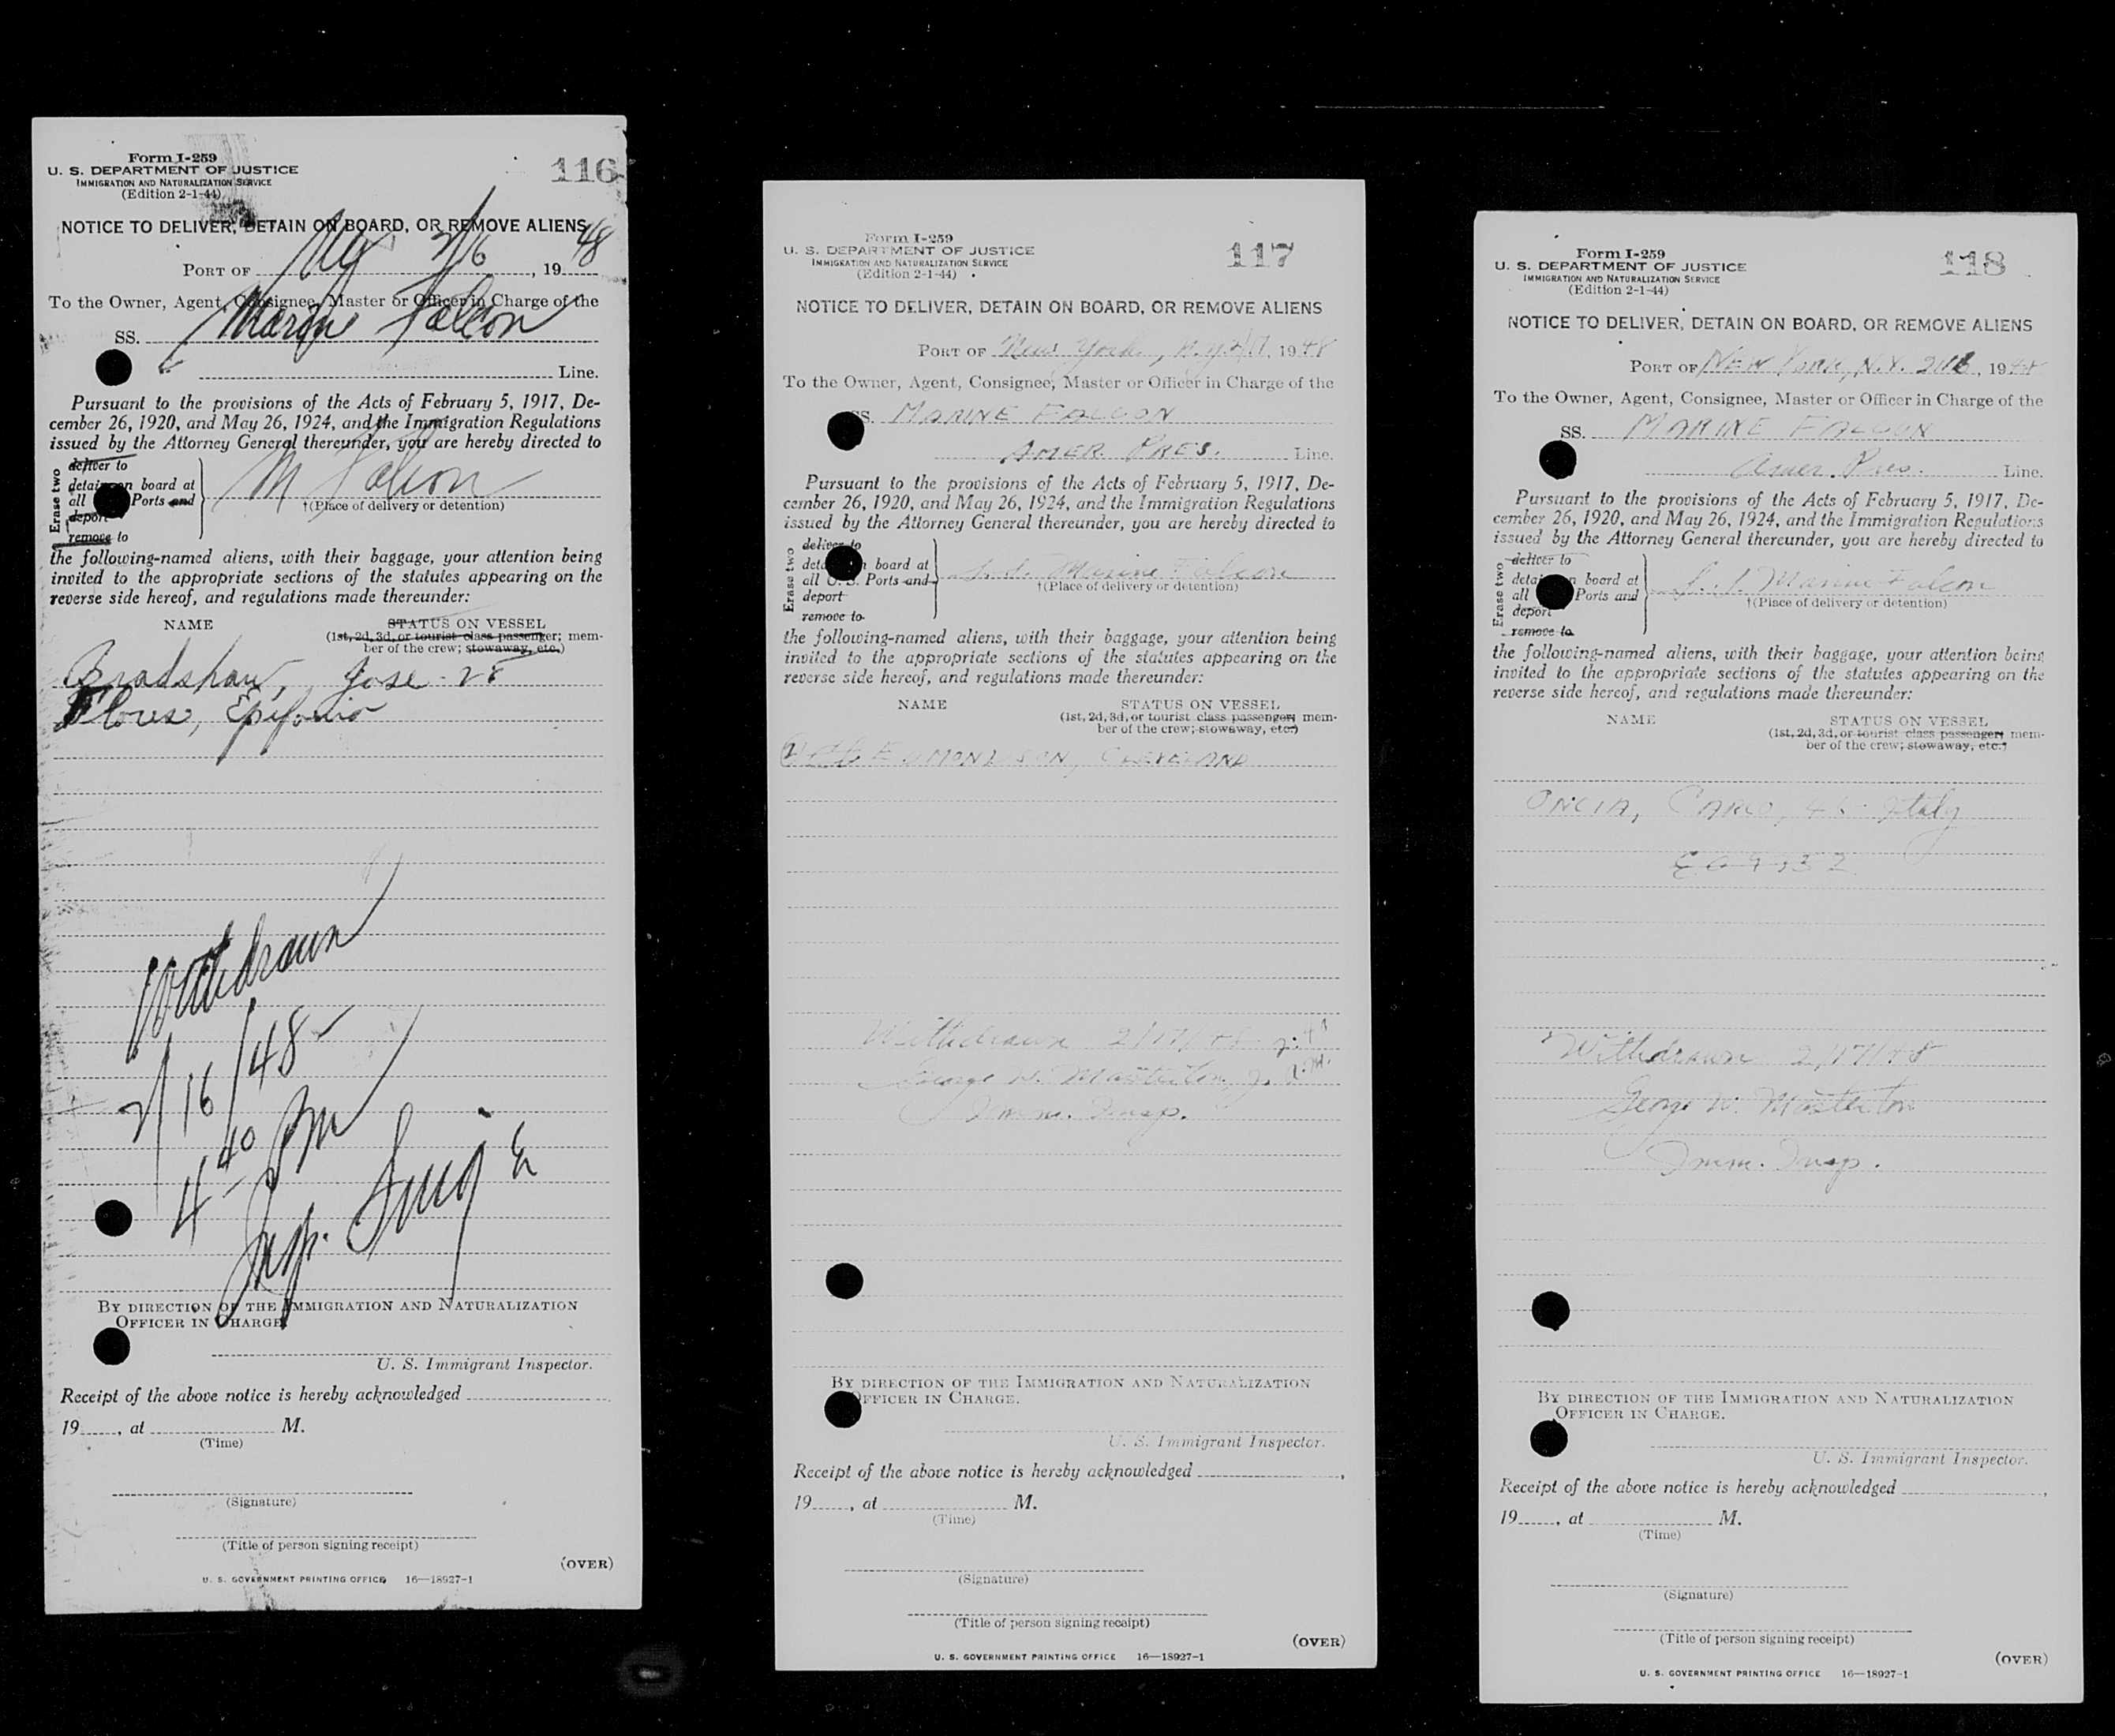 Form I-259
116
U. S. DEPARTMENT OF JUSTICE
IMMIGRATION AND NATURALIZATION SERVICE
(Edition 2-1-44)
NOTICE TO DELIVER, DETAIN ON BOARD, OR REMOVE ALIENS
PORT OF NY 2/16, 1948
To the Owner, Agent, Consignee, Master or Officer in Charge of the
SS. Marine Falcon
Line.
Pursuant to the provisions of the Acts of February 5, 1917, De-
cember 26, 1920, and May 26, 1924, and the Immigration Regulations
issued by the Attorney General thereunder, you are hereby directed to
Erase two
deliver to
detain on board at
all Ports and
deport
remove to
M Falcon
†(Place of delivery or detention)
the following-named aliens, with their baggage, your attention being
invited to the appropriate sections of the statutes appearing on the
reverse side hereof, and regulations made thereunder:
NAME STATUS ON VESSEL
(1st, 2d, 3d, or tourist class passenger; mem-
ber of the crew; stowaway, etc.)
Bradshaw, Jose 28
Flores, Epifanio
Withdrawn
2/16/48
4 40 PM
Insp.
BY DIRECTION OF THE IMMIGRATION AND NATURALIZATION
OFFICER IN CHARGE
U. S. Immigrant Inspector.
Receipt of the above notice is hereby acknowledged
19, at M.
(Time)
(Signature)
(Title of person signing receipt)
(OVER)
U. S. GOVERNMENT PRINTING OFFICE 16—18927-1
Form I-259
117
U. S. DEPARTMENT OF JUSTICE
IMMIGRATION AND NATURALIZATION SERVICE
(Edition 2-1-44)
NOTICE TO DELIVER, DETAIN ON BOARD, OR REMOVE ALIENS
PORT OF New York, N.Y. 2/17, 1948
To the Owner, Agent, Consignee, Master or Officer in Charge of the
SS. MARINE FALCON
AMER. PRES. Line.
Pursuant to the provisions of the Acts of February 5, 1917, De-
cember 26, 1920, and May 26, 1924, and the Immigration Regulations
issued by the Attorney General thereunder, you are hereby directed to
Erase two
deliver to
detain on board at
all U. S. Ports and
deport
remove to
S.S. Marine Falcon
†(Place of delivery or detention)
the following-named aliens, with their baggage, your attention being
invited to the appropriate sections of the statutes appearing on the
reverse side hereof, and regulations made thereunder:
NAME STATUS ON VESSEL
(1st, 2d, 3d, or tourist class passenger; mem-
ber of the crew; stowaway, etc.)
EDMONDSON, CLEVELAND
Withdrawn 2/17/48
George W. Masterton, Jr. P.M.
Imm. Insp.
BY DIRECTION OF THE IMMIGRATION AND NATURALIZATION
OFFICER IN CHARGE.
U. S. Immigrant Inspector.
Receipt of the above notice is hereby acknowledged,
19, at M.
(Time)
(Signature)
(Title of person signing receipt)
(OVER)
U. S. GOVERNMENT PRINTING OFFICE 16—18927-1
Form I-259
118
U. S. DEPARTMENT OF JUSTICE
IMMIGRATION AND NATURALIZATION SERVICE
(Edition 2-1-44)
NOTICE TO DELIVER, DETAIN ON BOARD, OR REMOVE ALIENS
PORT OF NEW YORK, N.Y. 2/16, 1948
To the Owner, Agent, Consignee, Master or Officer in Charge of the
SS. MARINE FALCON
Amer. Pres. Line.
Pursuant to the provisions of the Acts of February 5, 1917, De-
cember 26, 1920, and May 26, 1924, and the Immigration Regulations
issued by the Attorney General thereunder, you are hereby directed to
Erase two
deliver to
detain on board at
all Ports and
deport
remove to
S.S. Marine Falcon
†(Place of delivery or detention)
the following-named aliens, with their baggage, your attention being
invited to the appropriate sections of the statutes appearing on the
reverse side hereof, and regulations made thereunder:
NAME STATUS ON VESSEL
(1st, 2d, 3d, or tourist class passenger; mem-
ber of the crew; stowaway, etc.)
ONCIA, CARLO, Italy
Withdrawn 2/17/48
George W. Masterton
Imm. Insp.
BY DIRECTION OF THE IMMIGRATION AND NATURALIZATION
OFFICER IN CHARGE.
U. S. Immigrant Inspector.
Receipt of the above notice is hereby acknowledged,
19, at M.
(Time)
(Signature)
(Title of person signing receipt)
(OVER)
U. S. GOVERNMENT PRINTING OFFICE 16—18927-1